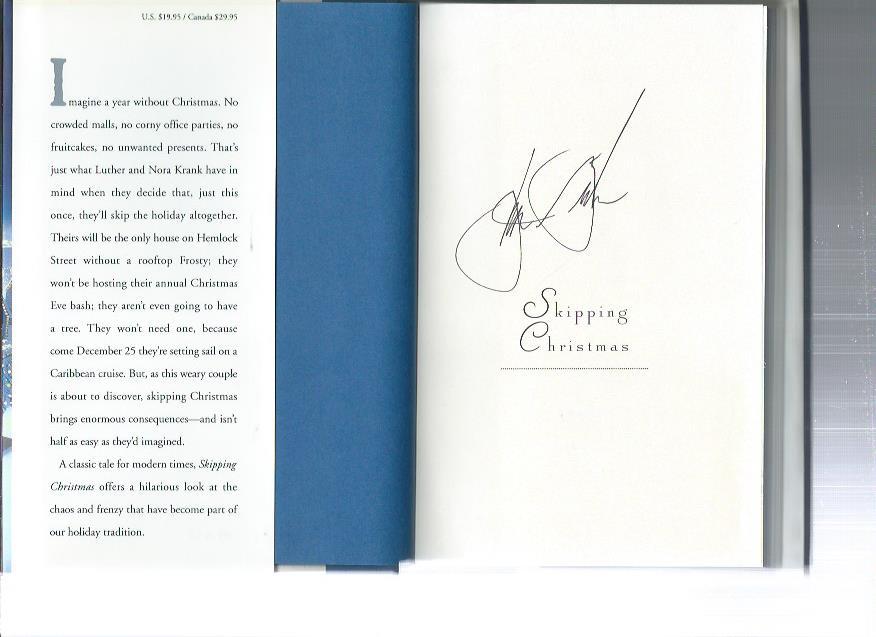 U.S. $19.95 / Canada $29.95
Imagine a year without Christmas. No
crowded malls, no corny office parties, no
fruitcakes, no unwanted presents. That's
just what Luther and Nora Krank have in
mind when they decide that, just this
once, they'll skip the holiday altogether.
Theirs will be the only house on Hemlock
Street without a rooftop Frosty; they
won't be hosting their annual Christmas
Eve bash; they aren't even going to have
a tree. They won't need one, because
come December 25 they're setting sail on a
Caribbean cruise. But, as this weary couple
is about to discover, skipping Christmas
brings enormous consequences—and isn't
half as easy as they'd imagined.
A classic tale for modern times, Skipping
Christmas offers a hilarious look at the
chaos and frenzy that have become part of
our holiday tradition.
Skipping
Christmas